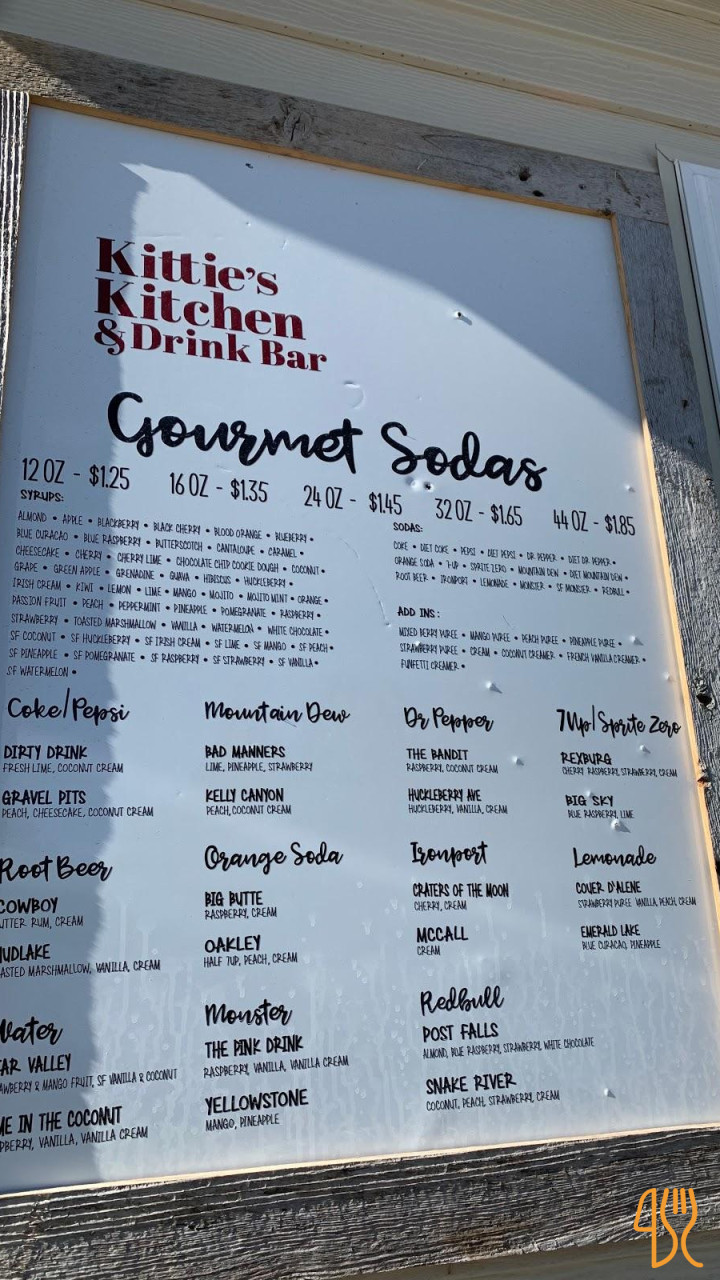 Kittie's
Kitchen
& Drink Bar
Gourmet Sodas
12 OZ - $1.25 16 OZ - $1.35 24 OZ - $1.45 32 OZ - $1.65 44 OZ - $1.85
SYRUPS:
ALMOND • APPLE • BLACKBERRY • BLACK CHERRY • BLOOD ORANGE • BLUEBERRY •
BLUE CURACAO • BLUE RASPBERRY • BUTTERSCOTCH • CANTALOUPE • CARAMEL •
CHEESECAKE • CHERRY • CHERRY LIME • CHOCOLATE CHIP COOKIE DOUGH • COCONUT •
GRAPE • GREEN APPLE • GRENADINE • GUAVA • HIBISCUS • HUCKLEBERRY •
IRISH CREAM • KIWI • LEMON • LIME • MANGO • MOJITO • MOJITO MINT • ORANGE •
PASSION FRUIT • PEACH • PEPPERMINT • PINEAPPLE • POMEGRANATE • RASPBERRY •
STRAWBERRY • TOASTED MARSHMALLOW • VANILLA • WATERMELON • WHITE CHOCOLATE •
SF COCONUT • SF HUCKLEBERRY • SF IRISH CREAM • SF LIME • SF MANGO • SF PEACH •
SF PINEAPPLE • SF POMEGRANATE • SF RASPBERRY • SF STRAWBERRY • SF VANILLA •
SF WATERMELON •
SODAS:
COKE • DIET COKE • PEPSI • DIET PEPSI • DR PEPPER • DIET DR PEPPER •
ORANGE SODA • 7-UP • SPRITE ZERO • MOUNTAIN DEW • DIET MOUNTAIN DEW •
ROOT BEER • IRONPORT • LEMONADE • MONSTER • SF MONSTER • REDBULL •
ADD INS:
MIXED BERRY PUREE • MANGO PUREE • PEACH PUREE • PINEAPPLE PUREE •
STRAWBERRY PUREE • CREAM • COCONUT CREAMER • FRENCH VANILLA CREAMER •
FUNFETTI CREAMER •
Coke/Pepsi
DIRTY DRINK
FRESH LIME, COCONUT CREAM
GRAVEL PITS
PEACH, CHEESECAKE, COCONUT CREAM
Mountain Dew
BAD MANNERS
LIME, PINEAPPLE, STRAWBERRY
KELLY CANYON
PEACH, COCONUT CREAM
Dr Pepper
THE BANDIT
RASPBERRY, COCONUT CREAM
HUCKLEBERRY AVE
HUCKLEBERRY, VANILLA, CREAM
7Up/Sprite Zero
REXBURG
CHERRY RASPBERRY, STRAWBERRY, CREAM
BIG SKY
BLUE RASPBERRY, LIME
Root Beer
COWBOY
UTTER RUM, CREAM
UDLAKE
ASTED MARSHMALLOW, VANILLA, CREAM
Orange Soda
BIG BUTTE
RASPBERRY, CREAM
OAKLEY
HALF 7UP, PEACH, CREAM
Ironport
CRATERS OF THE MOON
CHERRY, CREAM
MCCALL
CREAM
Lemonade
COUER D'ALENE
STRAWBERRY PUREE VANILLA, PEACH, CREAM
EMERALD LAKE
BLUE CURACAO, PINEAPPLE
Water
AR VALLEY
AWBERRY & MANGO FRUIT, SF VANILLA & COCONUT
ME IN THE COCONUT
PBERRY, VANILLA, VANILLA CREAM
Monster
THE PINK DRINK
RASPBERRY, VANILLA, VANILLA CREAM
YELLOWSTONE
MANGO, PINEAPPLE
Redbull
POST FALLS
ALMOND, BLUE RASPBERRY, STRAWBERRY, WHITE CHOCOLATE
SNAKE RIVER
COCONUT, PEACH, STRAWBERRY, CREAM